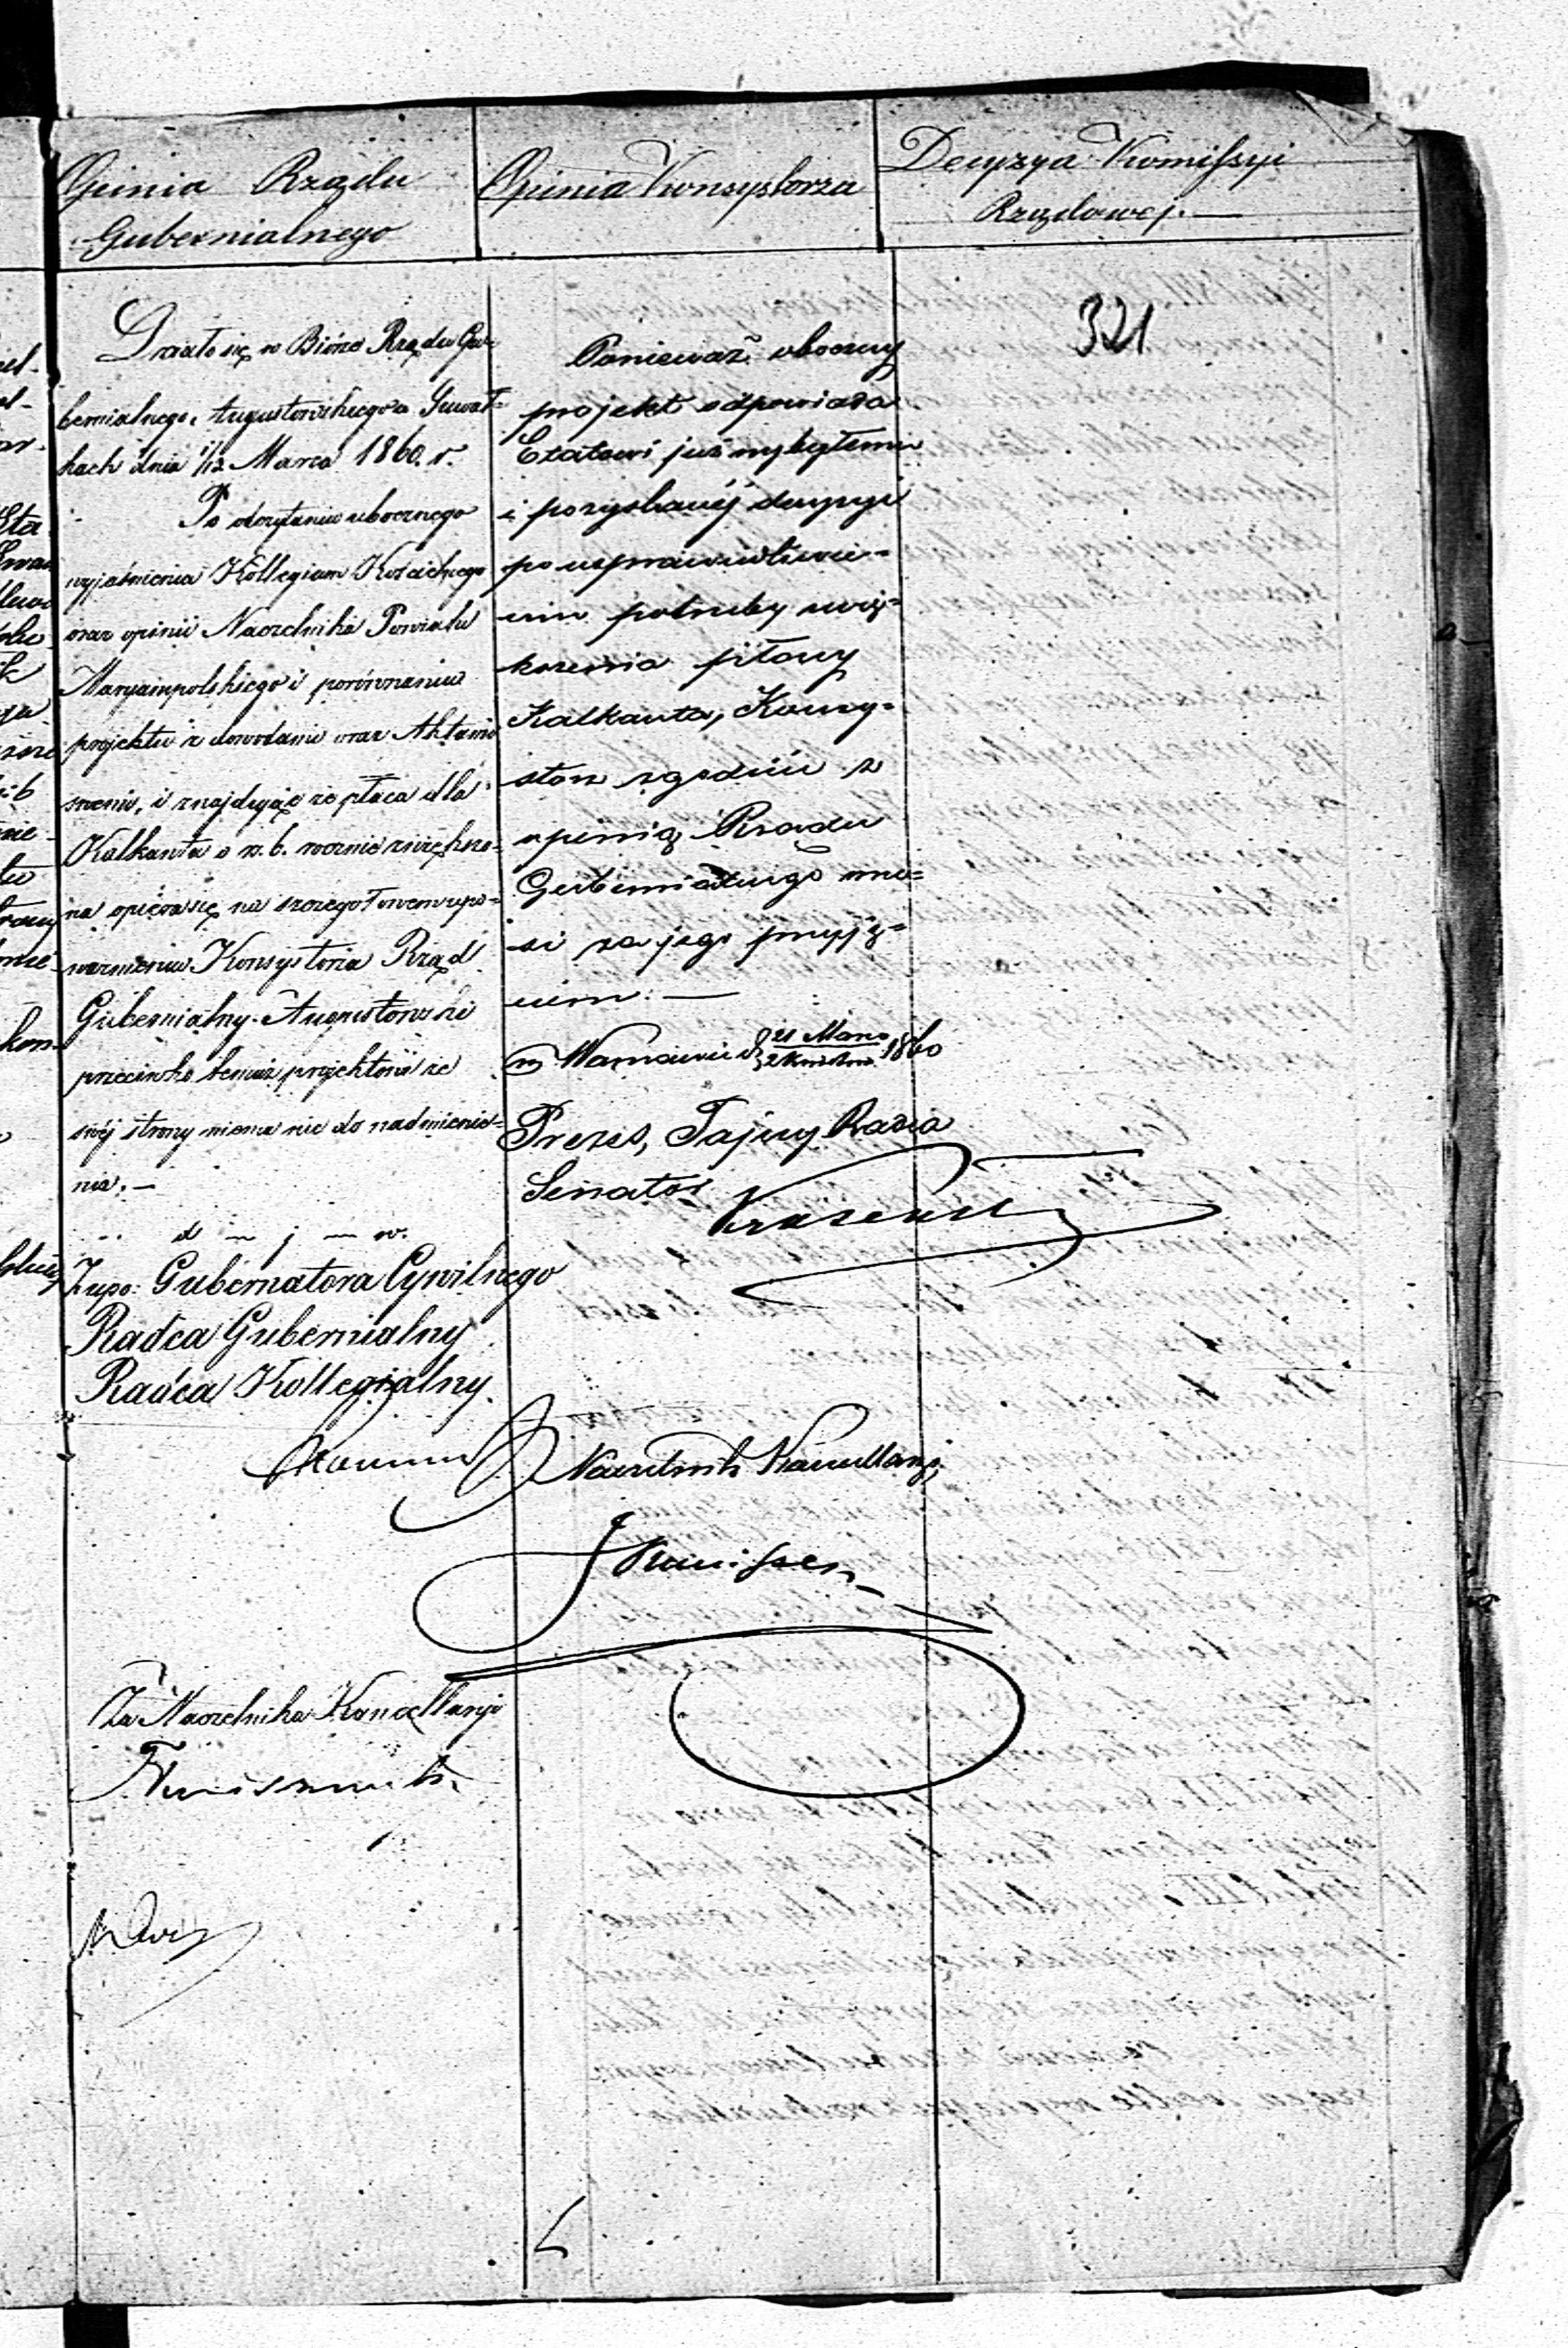 Opinia Rządu
Gubernialnego
Opinia Konsystorza
Decyzya Komissyi
Rządowej.—
321
Działo się w Biórze Rządu Gu-
bernialnego Augustowskiego w Suwał-
kach dnia 1/13 Marca 1860. r.
Po odczytaniu ubocznego
wyjaśnienia Kollegium Kościelnego
oraz opinii Naczelnika Powiatu
Maryampolskiego i porównaniu
projektu z dowodami oraz Aktami
i znajdując że płaca dla
Kalkanta o r. 6. rocznie zwiększo-
na opiera się na szczegółowem upo-
ważnieniu Konsystorza Rząd
Gubernialny Augustowski
przeciwko temuż projektowi ze
swej strony niema nic do nadmienie-
nia.—
d — j — w.
Zupo: Gubernatora Cywilnego
Radca Gubernialny
Radca Kollegialny
Za Naczelnika Kancellaryi
Ponieważ uboczny
projekt odpowiada
Etatowi już wybytemu
i pozyskanej decyzyi
po usprawiedliwie-
niu potrzeby zwię-
kszenia płacy
Kalkanta, Konsy-
storz zgodnie z
opinią Rządu
Gubernialnego wno-
si za jego przyję-
ciem.—
w Warszawie d. 21 Marca / 2 Kwietnia 1860
Prezes, Tajny Radca
Senator
Naczelnik Kancellaryi